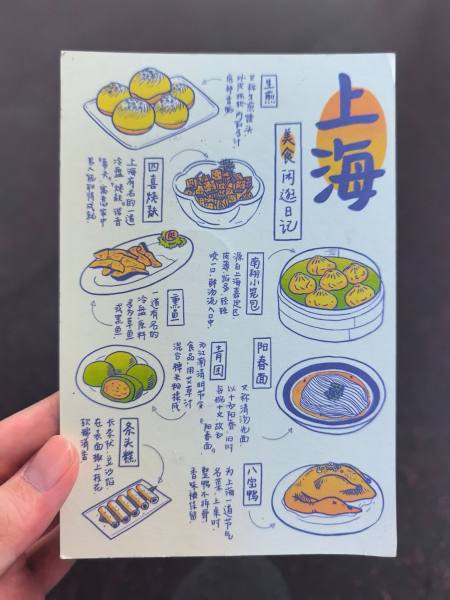 上海
美食闲逛日记
生煎
又称生煎馒头
外皮松软,内馅多汁
底部香脆
四喜烤麸
上海有名的一道
冷盘,烤麸,谐音
南翔小笼包
源自上海嘉定区
皮薄馅多,轻轻
咬一口,鲜汤流入口中
熏鱼
一道有名的
冷盘,原料
多为草鱼
或黑鱼.
阳春面
又称清汤光面
以十为阳春,旧时
每碗十文故为
“阳春面”。
青团
为江南清明节令
食品,用艾草汁
混合糯米粉揉成
条头糕
长条状,豆沙馅
在表面撒上桂花
软糯清香
八宝鸭
为上海一道节气
名菜,上桌时
整鸭不拆骨